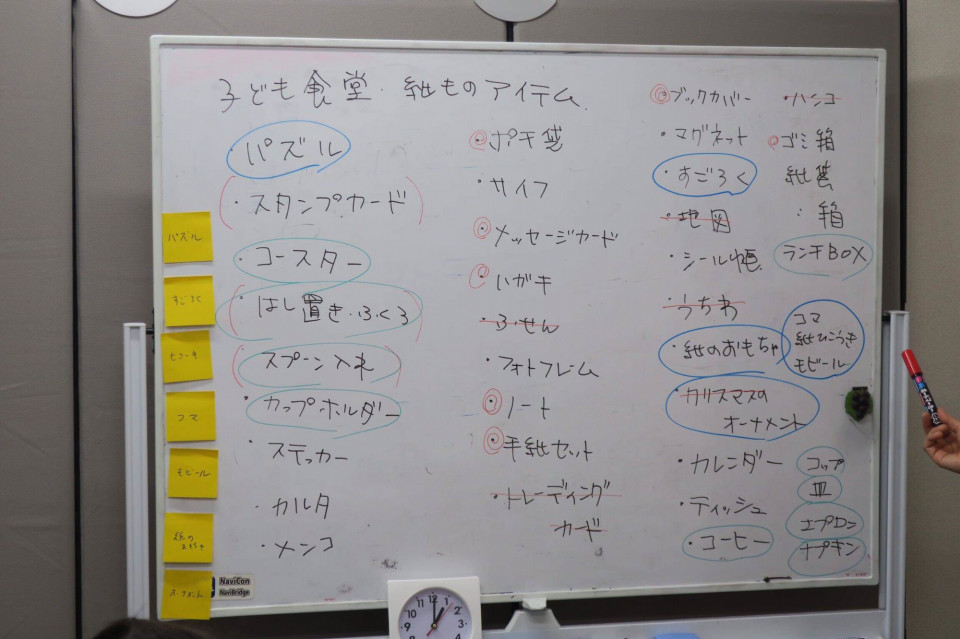 子ども食堂・紙ものアイテム
・パズル
・スタンプカード
・コースター
・はし置き・ふくろ
・スプーン入れ
・カップホルダー
・ステッカー
・カルタ
・メンコ
・ポチ袋
・サイフ
・メッセージカード
・ハガキ
・ふせん
・フォトフレーム
・ノート
・手紙セット
・トレーディング
カード
・ブックカバー
・マグネット
・すごろく
・地図
・シール帳
・うちわ
・紙のおもちゃ
・クリスマスの
オーナメント
・カレンダー
・ティッシュ
・コーヒー
・ハンコ
・ゴミ箱
紙袋
・箱
ランチBOX
コマ
紙ひこうき
モビール
コップ
皿
エプロン
ナプキン
パズル
すごろく
ヒコーキ
コマ
モビール
紙の
おもちゃ
オーナメント
NaviCon
NaviBridge
10
11
12
1
2
3
9
8
4